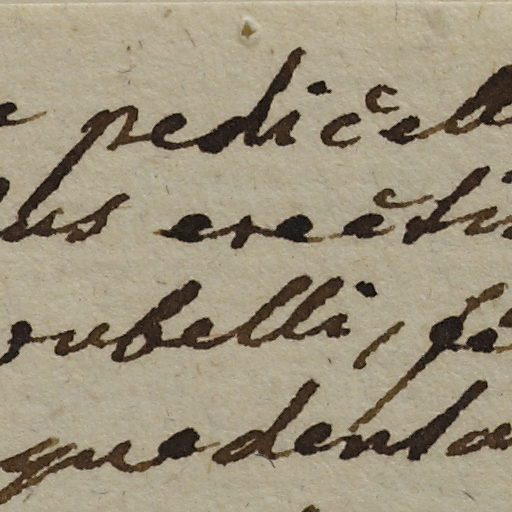 e pedicell
lus erecti
orubelli, fe
quedenta